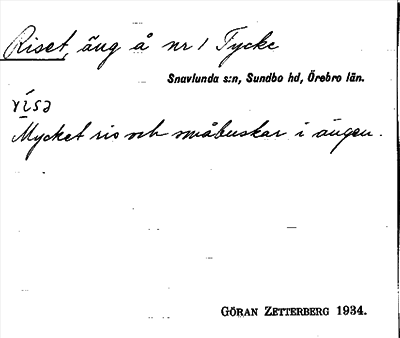 Riset, äng å nr 1 Tycke
Snavlunda s:n, Sundbo hd, Örebro län.
rísə
Mycket ris och småbuskar i ängen.
GÖRAN ZETTERBERG 1934.